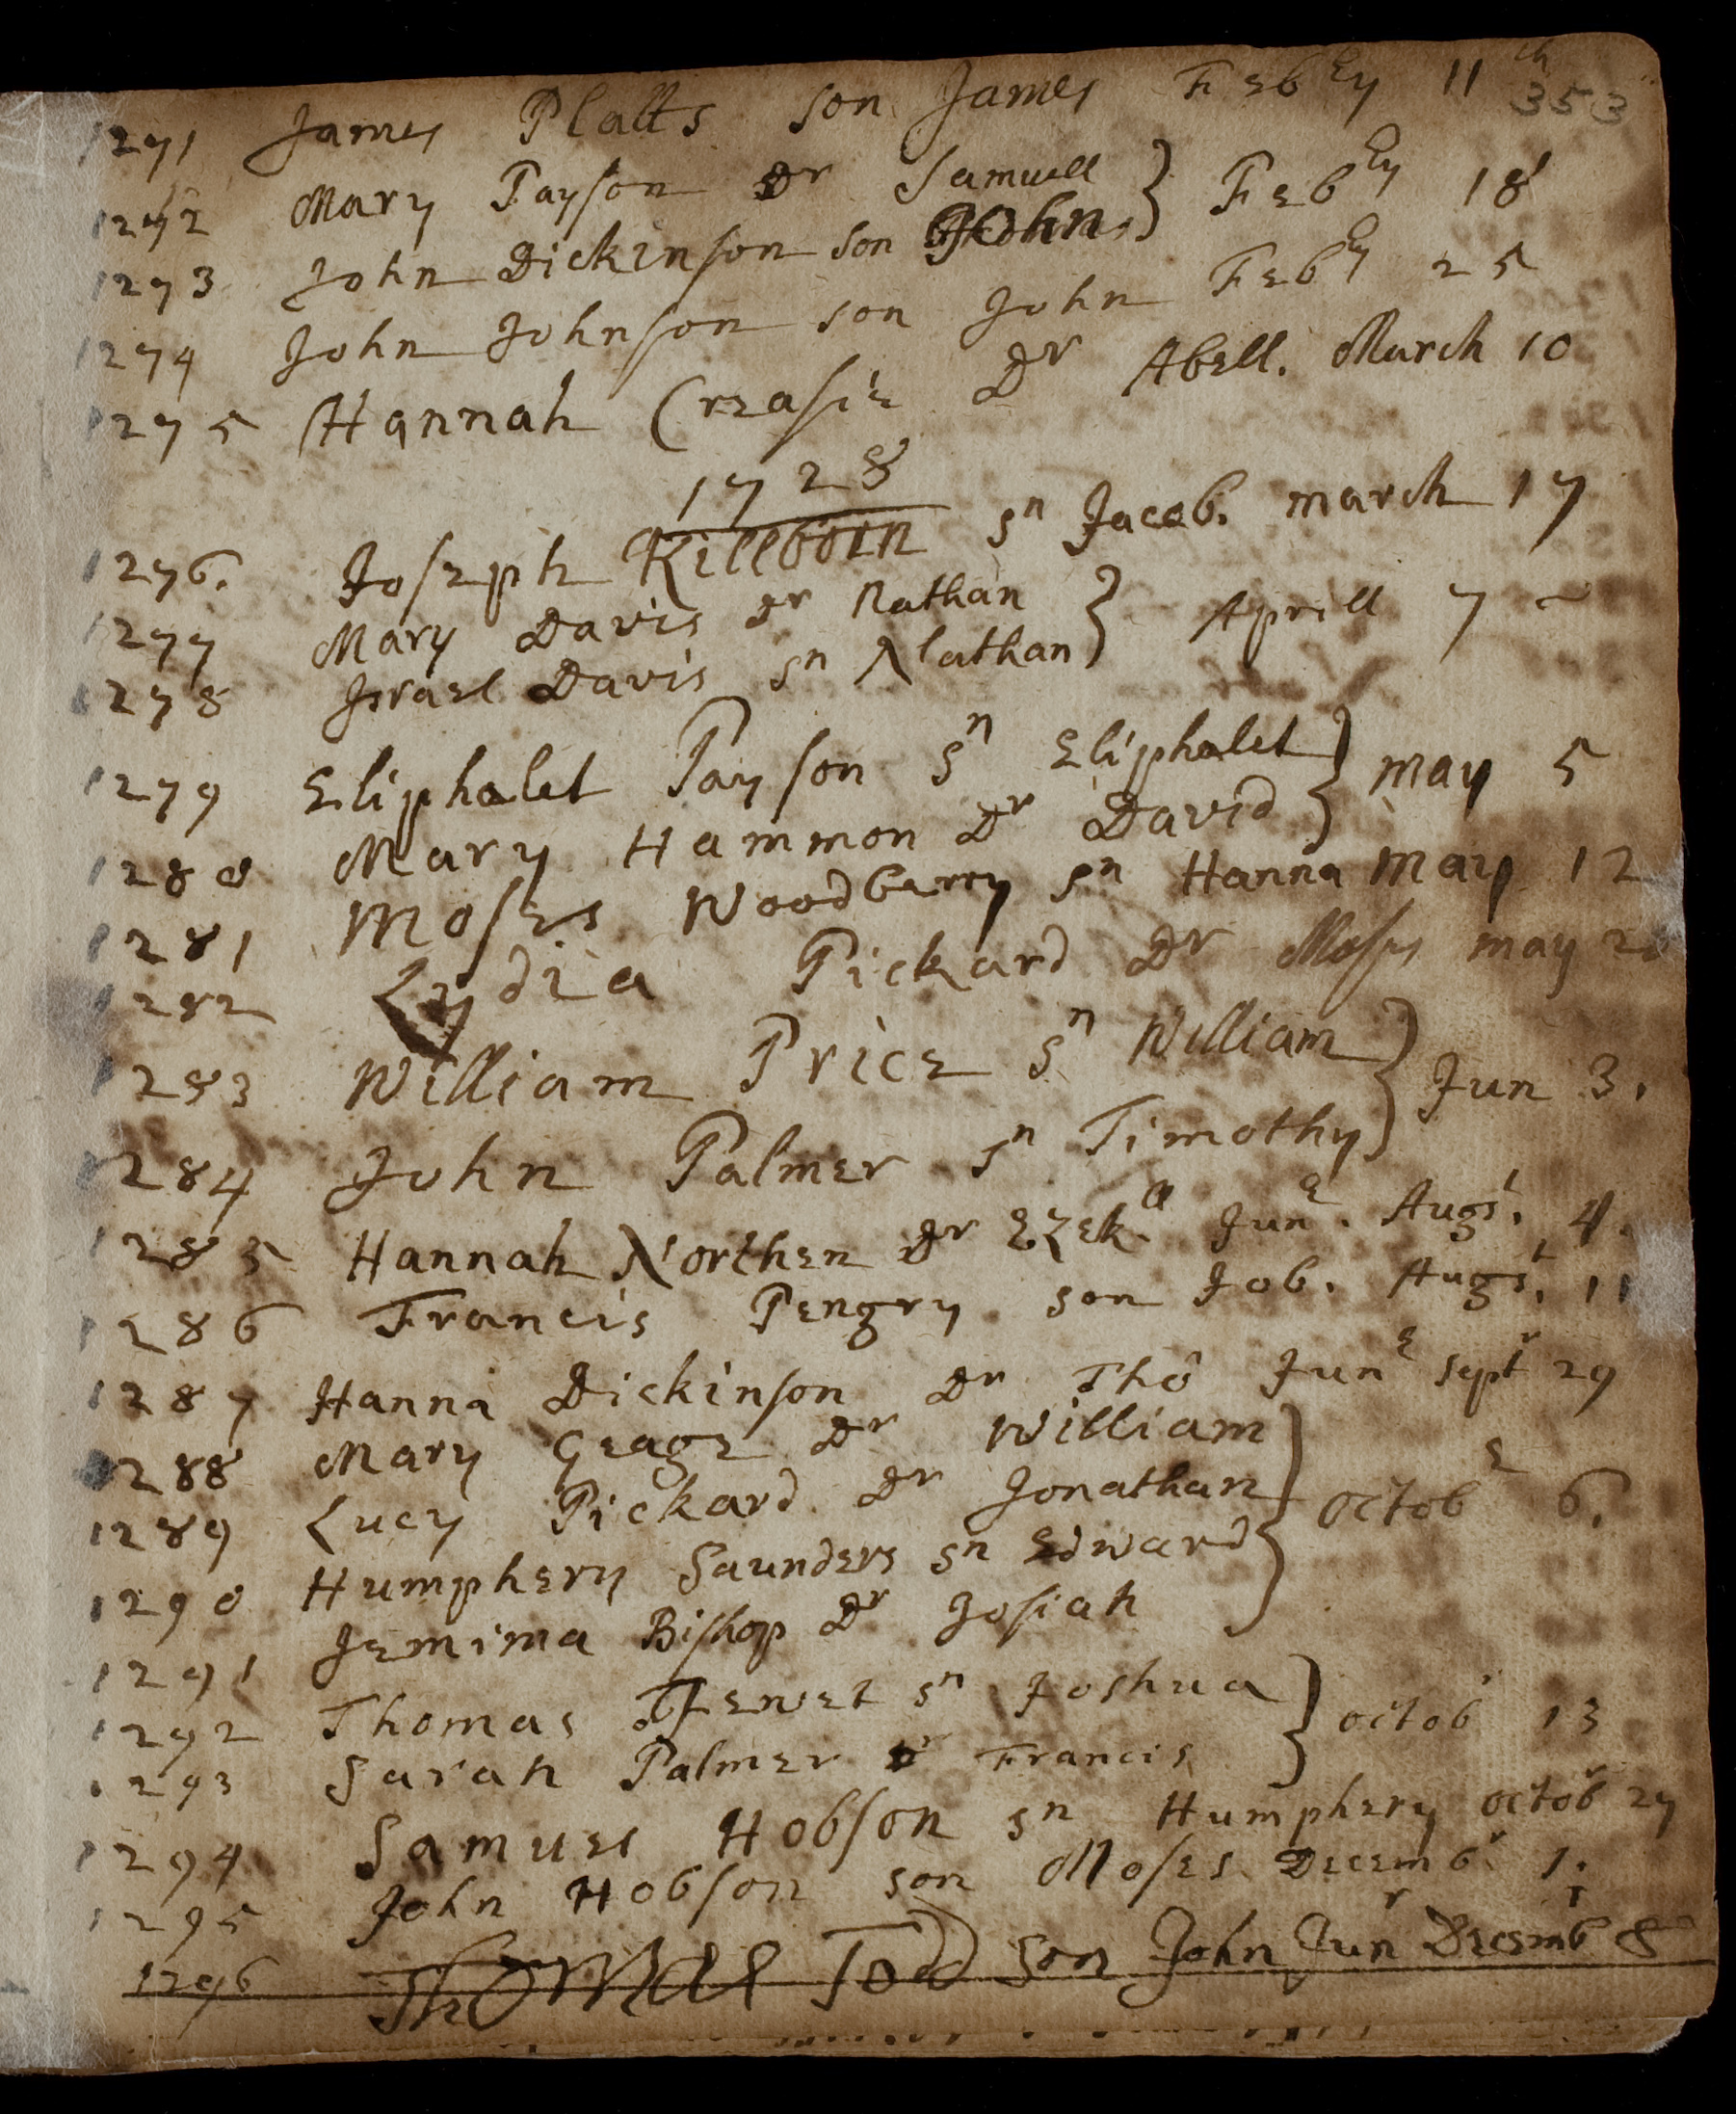 353
1271 James Platts son James Febry 11th
1272 Mary Payson Dr Samuell } Febry 18
1273 John Dickinson son John.
1274 John Johnson son John Febry 25
1275 Hannah Creasie Dr Abell. March 10
1728
1276. Joseph Killborn sn Jacob. march 17
1277 Mary Davis Dr Nathan } Aprill 7
1278 Israel Davis sn Nathan
1279 Eliphalet Payson sn Eliphalet } may 5
1280 Mary Hammon Dr David
1281 Moses Woodberry sn Hanna may 12
1282 Lydia Pickard Dr Moses may
1283 William Price sn William } Jun 3.
1284 John Palmer sn Timothy
1285 Hannah Northen Dr Ezekll June. Augst. 4.
1286 Francis Pengry son Job. Augst. 11
1287 Hanna Dickinson Dr Tho June Septr 29
1288 Mary Geage Dr William
1289 Lucy Pickard Dr Jonathan } octobe 6.
1290 Humphery Saunders sn Edward
1291 Jemima Bishop Dr Josiah
1292 Thomas Jewet sn Joshua } octobr 13
1293 Sarah Palmer Dr Francis
1294 Samuel Hobson sn Humphery octobr 27
1295 John Hobson son Moses Decembr 1.
1296 Thomas Todd son John Junr Decembr 8